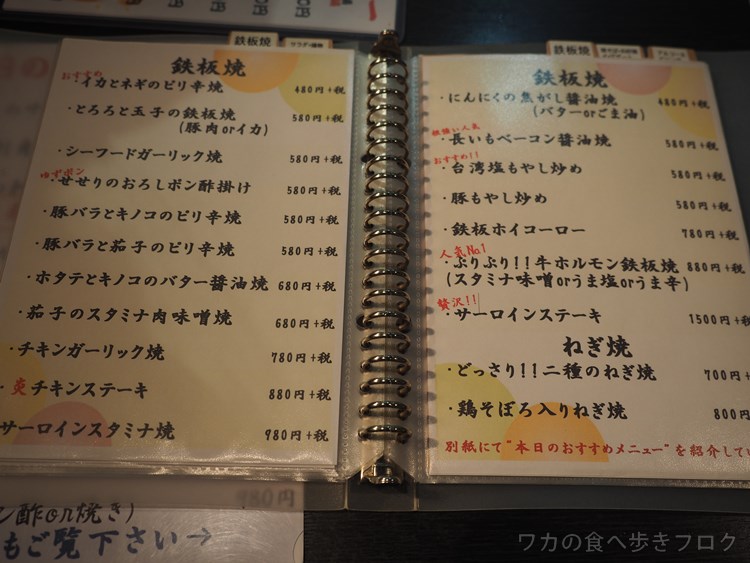 鉄板焼
鉄板焼
おすすめ
・イカとネギのピリ辛焼 480円+税
・とろろと玉子の鉄板焼 580円+税
(豚肉orイカ)
・シーフードガーリック焼 580円+税
ゆずポン
・せせりのおろしポン酢掛け 580円+税
・豚バラとキノコのピリ辛焼 580円+税
・豚バラと茄子のピリ辛焼 580円+税
・ホタテとキノコのバター醤油焼 680円+税
・茄子のスタミナ肉味噌焼 680円+税
・チキンガーリック焼 780円+税
・炎チキンステーキ 880円+税
サーロインスタミナ焼 980円+税
980円
ン酢or焼き)
もご覧下さい→
鉄板焼
鉄板焼
・にんにくの焦がし醤油焼 480円+税
(バターorごま油)
・長いもベーコン醤油焼 580円+税
おすすめ!!
・台湾塩もやし炒め 580円+税
・豚もやし炒め 580円+税
・鉄板ホイコーロー 780円+税
人気No.1
・ぷりぷり!!牛ホルモン鉄板焼 880円+税
(スタミナ味噌orうま塩orうま辛)
贅沢!!
・サーロインステーキ 1500円+税
ねぎ焼
・どっさり!!二種のねぎ焼 700円+
・鶏そぼろ入りねぎ焼 800円
別紙にて"本日のおすすめメニュー"を紹介して
ワカの食べ歩きブログ